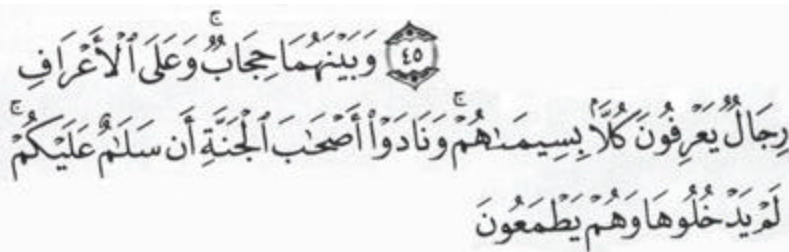 ﴿٤٥﴾ وَبَيْنَهُمَا حِجَابٌ ۚ وَعَلَى ٱلْأَعْرَافِ
رِجَالٌ يَعْرِفُونَ كُلًّۢا بِسِيمَىٰهُمْ ۚ وَنَادَوْا۟ أَصْحَٰبَ ٱلْجَنَّةِ أَن سَلَٰمٌ عَلَيْكُمْ ۚ
لَمْ يَدْخُلُوهَا وَهُمْ يَطْمَعُونَ